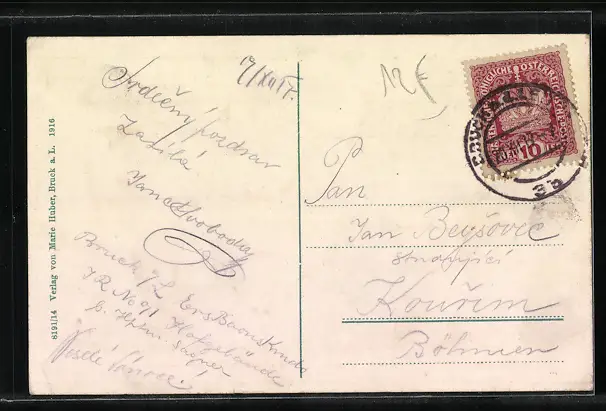 17/XII 17.
Srdečný pozdrav
zasílá
Jan Svoboda
Bruck a/L Ers Baonskmdo
IR No 91 Hofgebäude
b. Hptm.
Veselé Vánoce.
6191/14 Verlag von Marie Huber, Bruck a. L. 1916
12 €
BRUCK a.d. LEITHA
3b
10
Pan
Jan
Kouřim
Böhmen